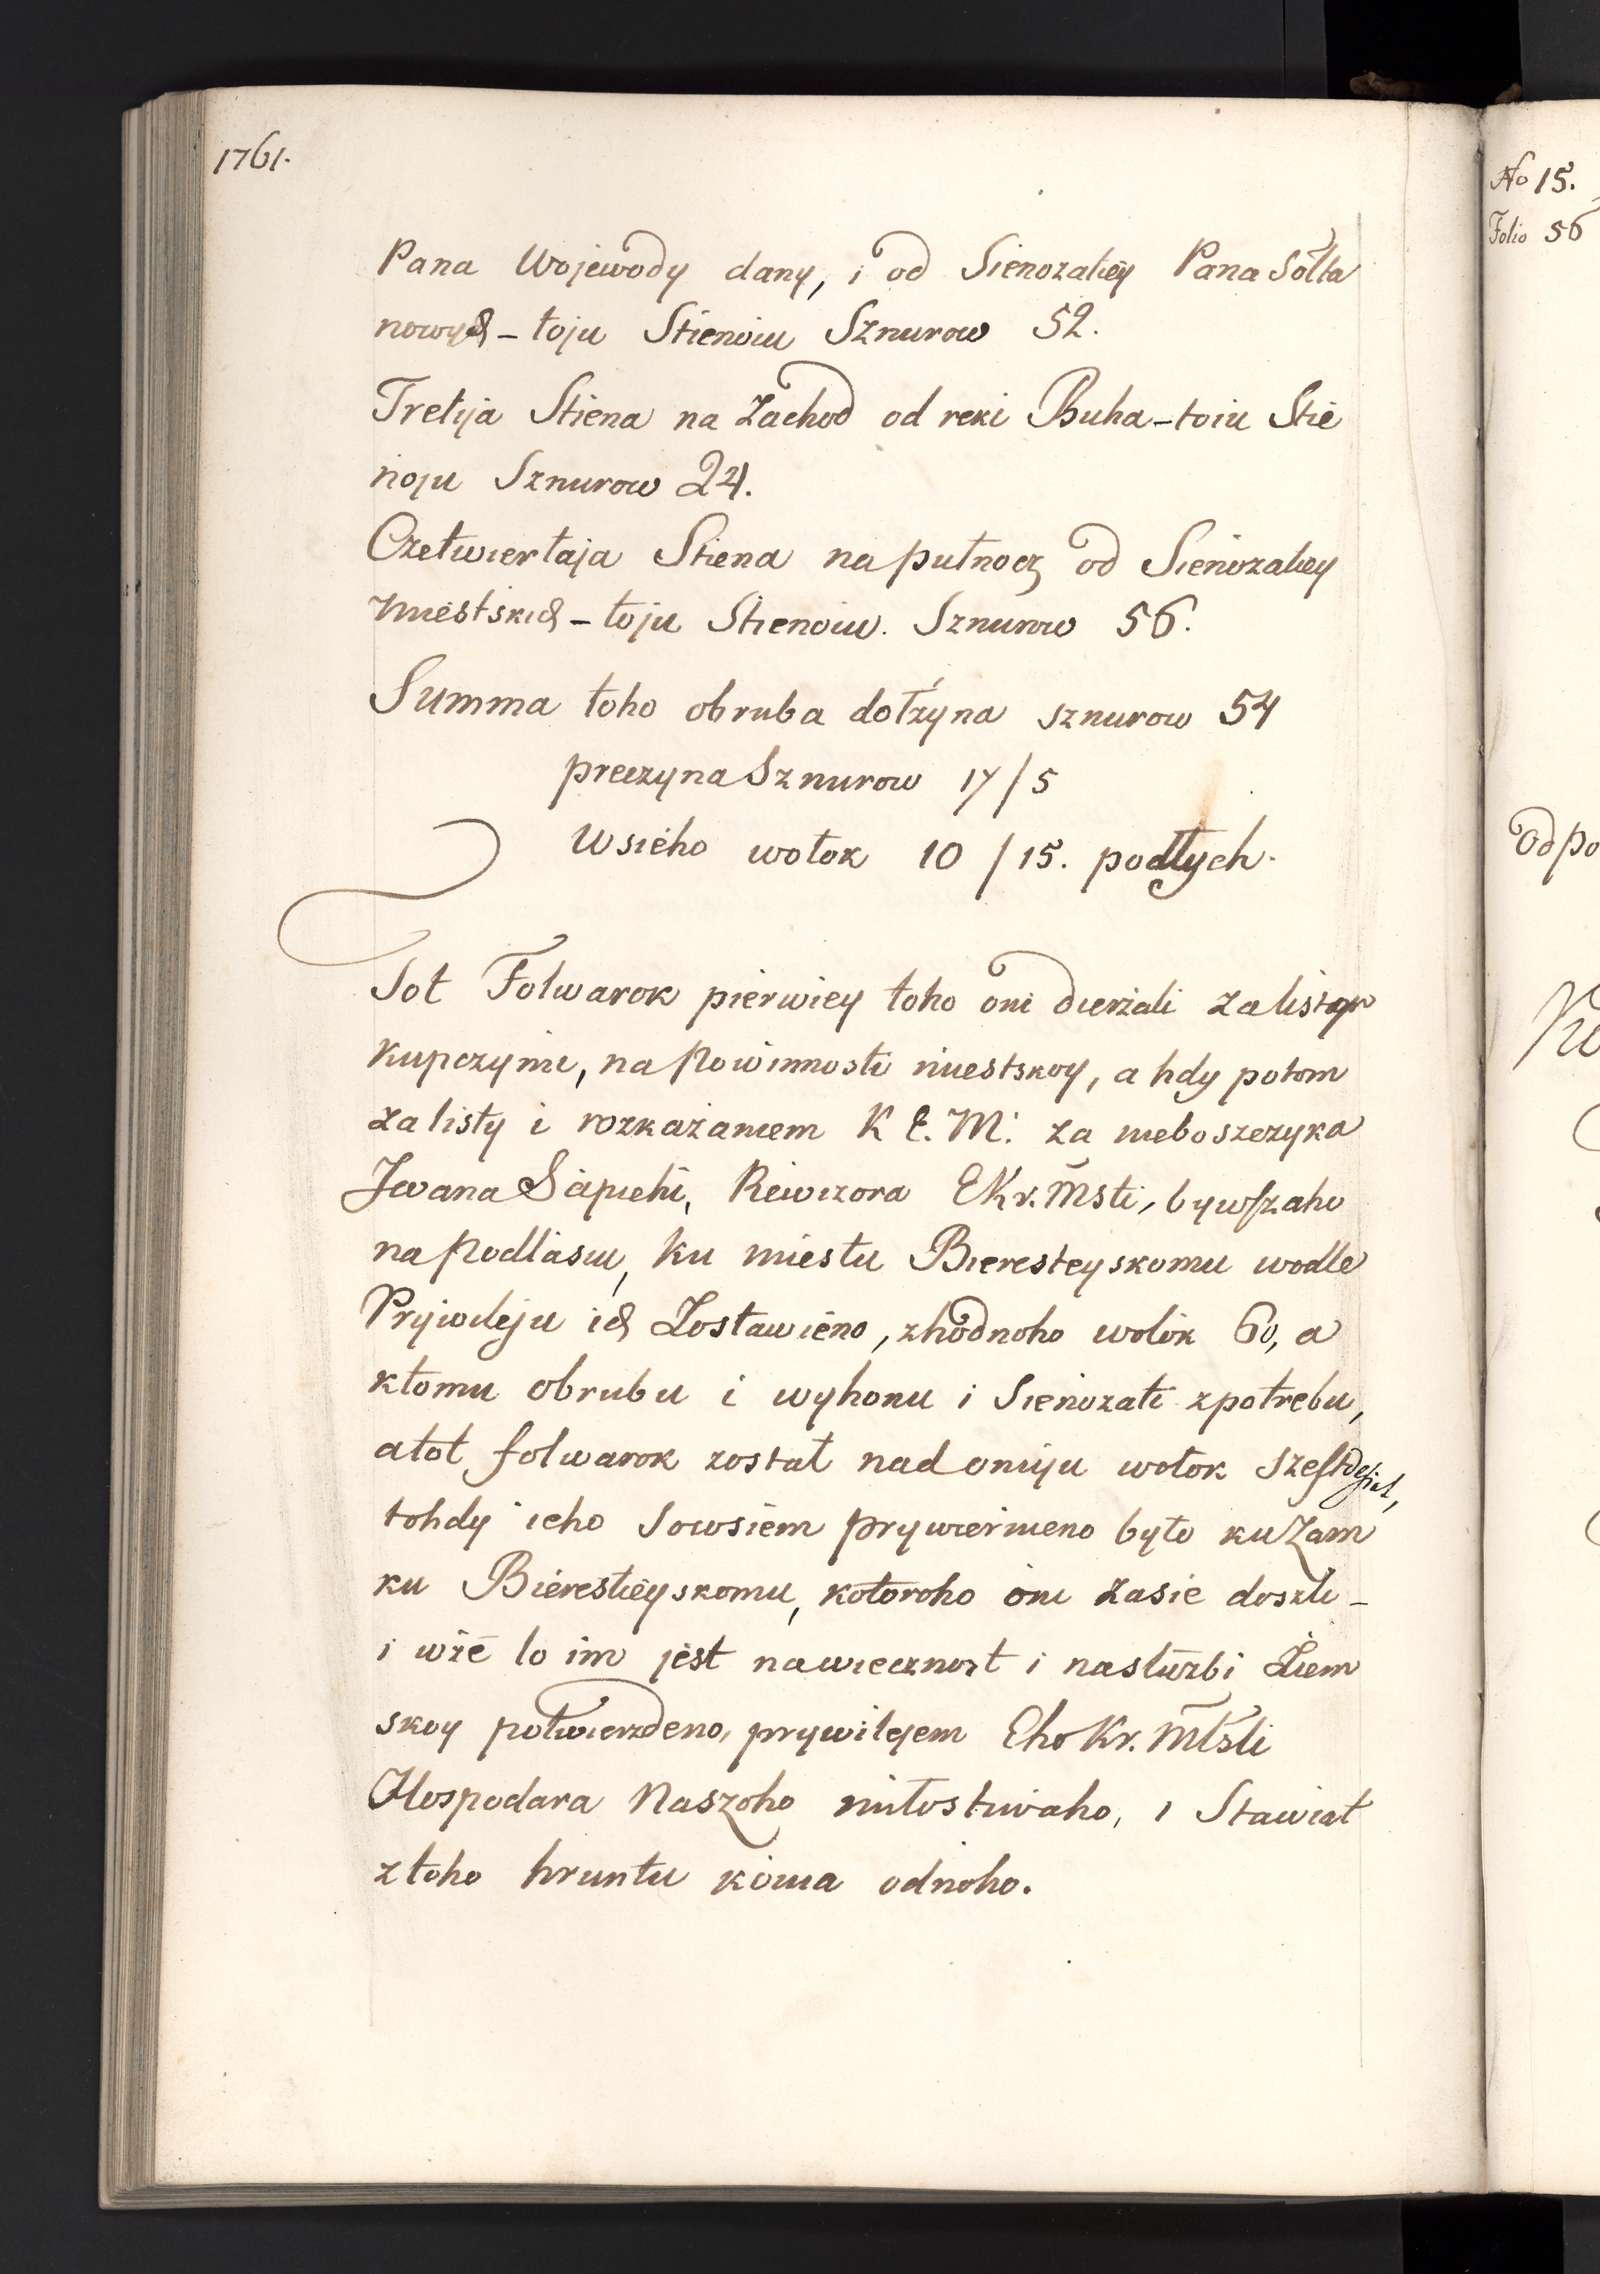 1761.
Pana Wojewody dany, i od Sienozatiey Pana Sołta
nowych - toju Stienoiu Sznurow 52.
Tretyja Stiena na Zachod od reki Buha - toiu Stie
noju Sznurow 24.
Czetwiertaja Stiena na pułnocz od Sienozatiey
miestskich - toju Stienoiu. Sznurow 56.
Summa toho obruba dołżyna sznurow 54
preczyna Sznurow 17/5
Wsieho wołok 10/15. podłych.
Tot Folwarok pierwiey toho oni dierżali za listom
kupczym, na Powinnosti miestskoy, a hdy potom
za listy i rozkazaniem K E. M: za nieboszczyka
Iwana Sapiehi, Rewizora E Kr. Msti, bywszaho
na Podlasiu, ku miestu Bieresteyskomu wodle
Prywileju ich Zostawieno, zhodnoho wołok 60, a
ktomu obrubu i wyhonu i Sienozati zpotrebu,
atot folwarok został nad omiju wołok szestdesiat,
tohdy ieho Sowsiem prywierneno było ku Zam
ku Bierestieyskomu, kotoroho oni zasie doszli -
i wże to im jest nawiecznost i nasłużbi Ziem
skoy potwierzdeno, prywilejem Eho Kr. Młsti
Hospodara Naszoho miłostiwaho, i Stawiat
ztoho hruntu konia odnoho.
No 15.
Folio 56
od po